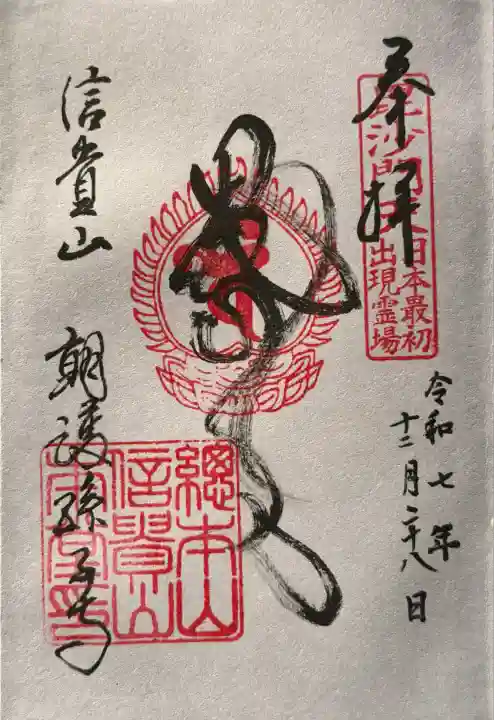 奉拝
毘沙門天日本最初
出現霊場
令和七年
十二月二十八日
信貴山
朝護孫子寺
總本山
信貴山